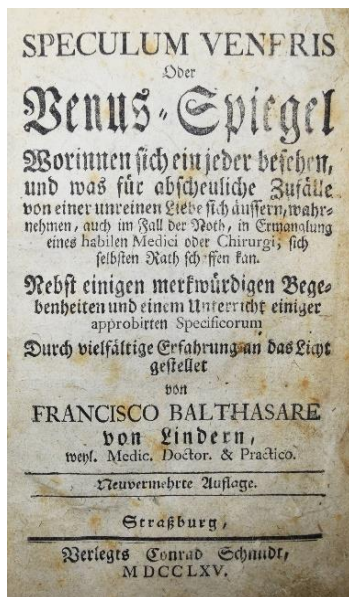 SPECULUM VENERIS
Oder
Venus-Spiegel
Worinnen sich ein jeder besehen,
und was für abscheuliche Zufälle
von einer unreinen Liebe sich äussern, wahr-
nehmen, auch im Fall der Noth, in Ermanglung
eines habilen Medici oder Chirurgi, sich
selbsten Rath schaffen kan.
Nebst einigen merkwürdigen Bege-
benheiten und einem Unterricht einiger
approbirten Specificorum
Durch vielfältige Erfahrung an das Licht
gestellet
von
FRANCISCO BALTHASARE
von Lindern,
weyl. Medic. Doctor. & Practico.
Neuvermehrte Auflage.
Straßburg,
Verlegts Conrad Schmidt,
MDCCLXV.